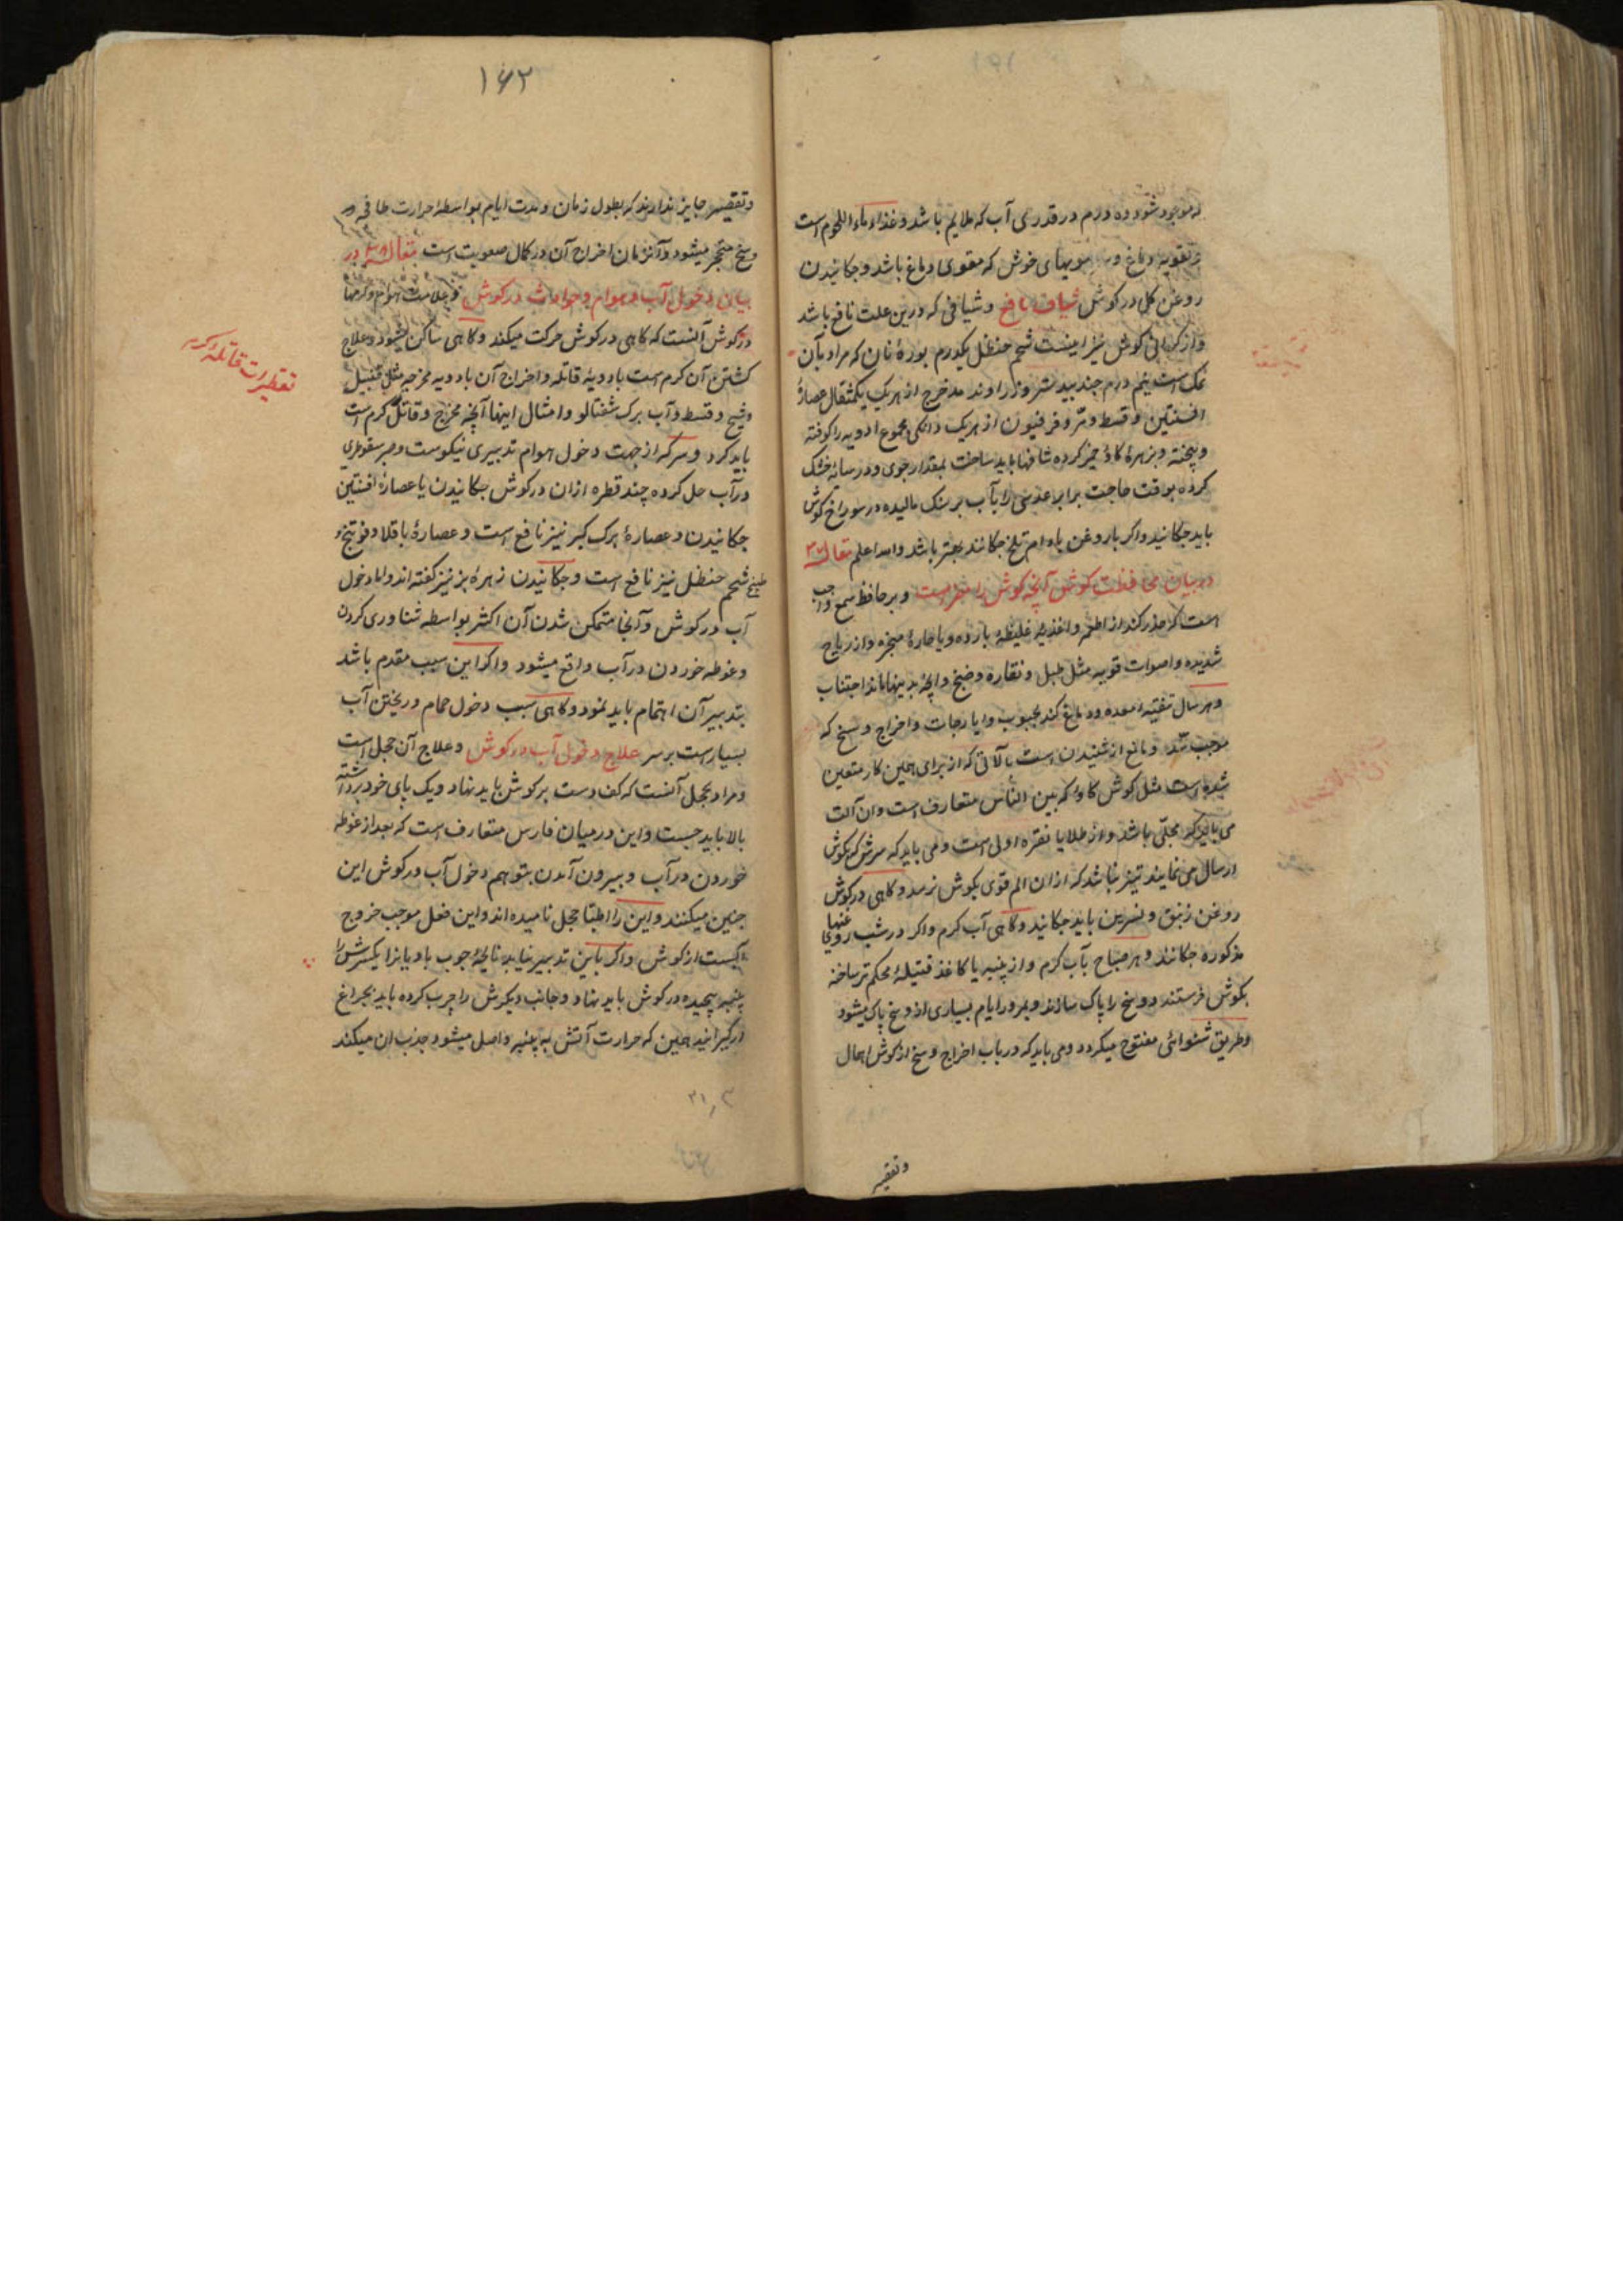 که موجود شود ده درم در قدری آب که ملایم باشد و غذاء ماء اللحوم است
و تقویه دماغ به بویهای خوش که مقوی دماغ باشد و چکانیدن
روغن گل در گوش شیاف نافع و شیافی که درین علت نافع باشد
و از گرانی گوش نیز اینست شحم حنظل یکدرم بورهٔ نان که مراد بآن
نمک است نیم درم جند بیدستر و زراوند مدحرج از هریک یکمثقال عصارهٔ
افسنتین و قسط و مر و فرفیون از هریک دانکی مجموع ادویه را کوفته
و پخته و بزهرهٔ کاو خمیر کرده شافها باید ساخت بمقدار جوی و در سایه خشک
کرده بوقت حاجت برابر عدسی را بآب بر سنک مالیده در سوراخ کوش
باید چکانید و اکر با روغن بادام تلخ چکانند بهتر باشد والله اعلم مقاله ۳۷
در بیان محافظت کوش آنچه کوش را مضر است و بر حافظ سمع واجب
است که حذر کند از اطعمه و اغذیهٔ غلیظهٔ بارده و یا حارهٔ مبخره و از ریاح
شدیده و اصوات قویه مثل طبل و نقاره و صنج و آنچه بدینها ماند اجتناب
و هر سال تنقیه معده و دماغ کند بحبوب و ایارجات و اخراج وسخ که
موجب سده و مانع از شنیدن است بآلاتی که از برای همین کار متعین
شده است مثل کوش کاوا که بین الناس متعارف است و آن آلت
می باید که مجلی باشد و از طلا یا نقره اولی است و می باید که سرش که بکوش
ارسال می نمایند تیز نباشد که از ان الم قوی بکوش نرسد و کاهی در کوش
روغن زنبق و نسرین باید چکانید و کاهی آب کرم و اکر در شب روغنهای
مذکوره چکانند و هر صباح بآب کرم و از پنبه یا کاغذ فتیلهٔ محکم تر ساخته
بکوش فرستند و وسخ را پاک سازند و بمرور ایام بسیاری از وسخ پاک میشود
و طریق شنوائی مفتوح میکردد و می باید که در باب اخراج وسخ از کوش اهمال
و تقصیر
۱۶۲
و تقصیر جایز ندارند که بطول زمان و مدت ایام بواسطهٔ حرارت
وسخ متحجر میشود و آنزمان اخراج آن در کمال صعوبت است مقاله ۳۸ در
بیان دخول آب و هوام و حوادث در کوش و علامت هوام و کرمها
در کوش آنست که کاهی در کوش حرکت میکند و کاهی ساکن میشود و علاج
کشتن آن کرم است بادویهٔ قاتله و اخراج آن بادویه مخرجه مثل قنبیل
و شیح و قسط و آب برک شفتالو و امثال اینها آنچه مخرج و قاتل کرم است
باید کرد و سرکه از جهت دخول هوام تدبیری نیکوست و صبر سقوطری
در آب حل کرده چند قطره ازان در کوش چکانیدن یا عصارهٔ افسنتین
چکانیدن و عصارهٔ برک کبر نیز نافع است و عصارهٔ باقلا و فوتنج و
طبیخ شحم حنظل نیز نافع است و چکانیدن زهرهٔ بز نیز کفته اند و اما دخول
آب در کوش و آنجا متمکن شدن آن اکثر بواسطه شناوری کردن
و غوطه خوردن در آب واقع میشود و اکر این سبب مقدم باشد
بتدبیر آن اهتمام باید نمود و کاهی سبب دخول حمام و ریختن آب
بسیار است بر سر علاج دخول آب در کوش و علاج آن حجل است
و مراد بحجل آنست که کف دست بر کوش باید نهاد و یک پای خود برداشته
بالا باید جست و این در میان فارس متعارف است که بعد از غوطه
خوردن در آب و بیرون آمدن بتوهم دخول آب در کوش این
چنین میکنند و این را اطبا حجل نامیده اند و این فعل موجب خروج
آبست از کوش و اکر باین تدبیر نیاید نایچهٔ چوب بادیانرا یکسرش را
پنبه پیچیده در کوش باید نهاد و جانب دیکرش را چرب کرده باید بچراغ
درکیرانید همین که حرارت آتش به پنبه واصل میشود جذب آن میکند
تقطیرات قاتلهٔ کرم